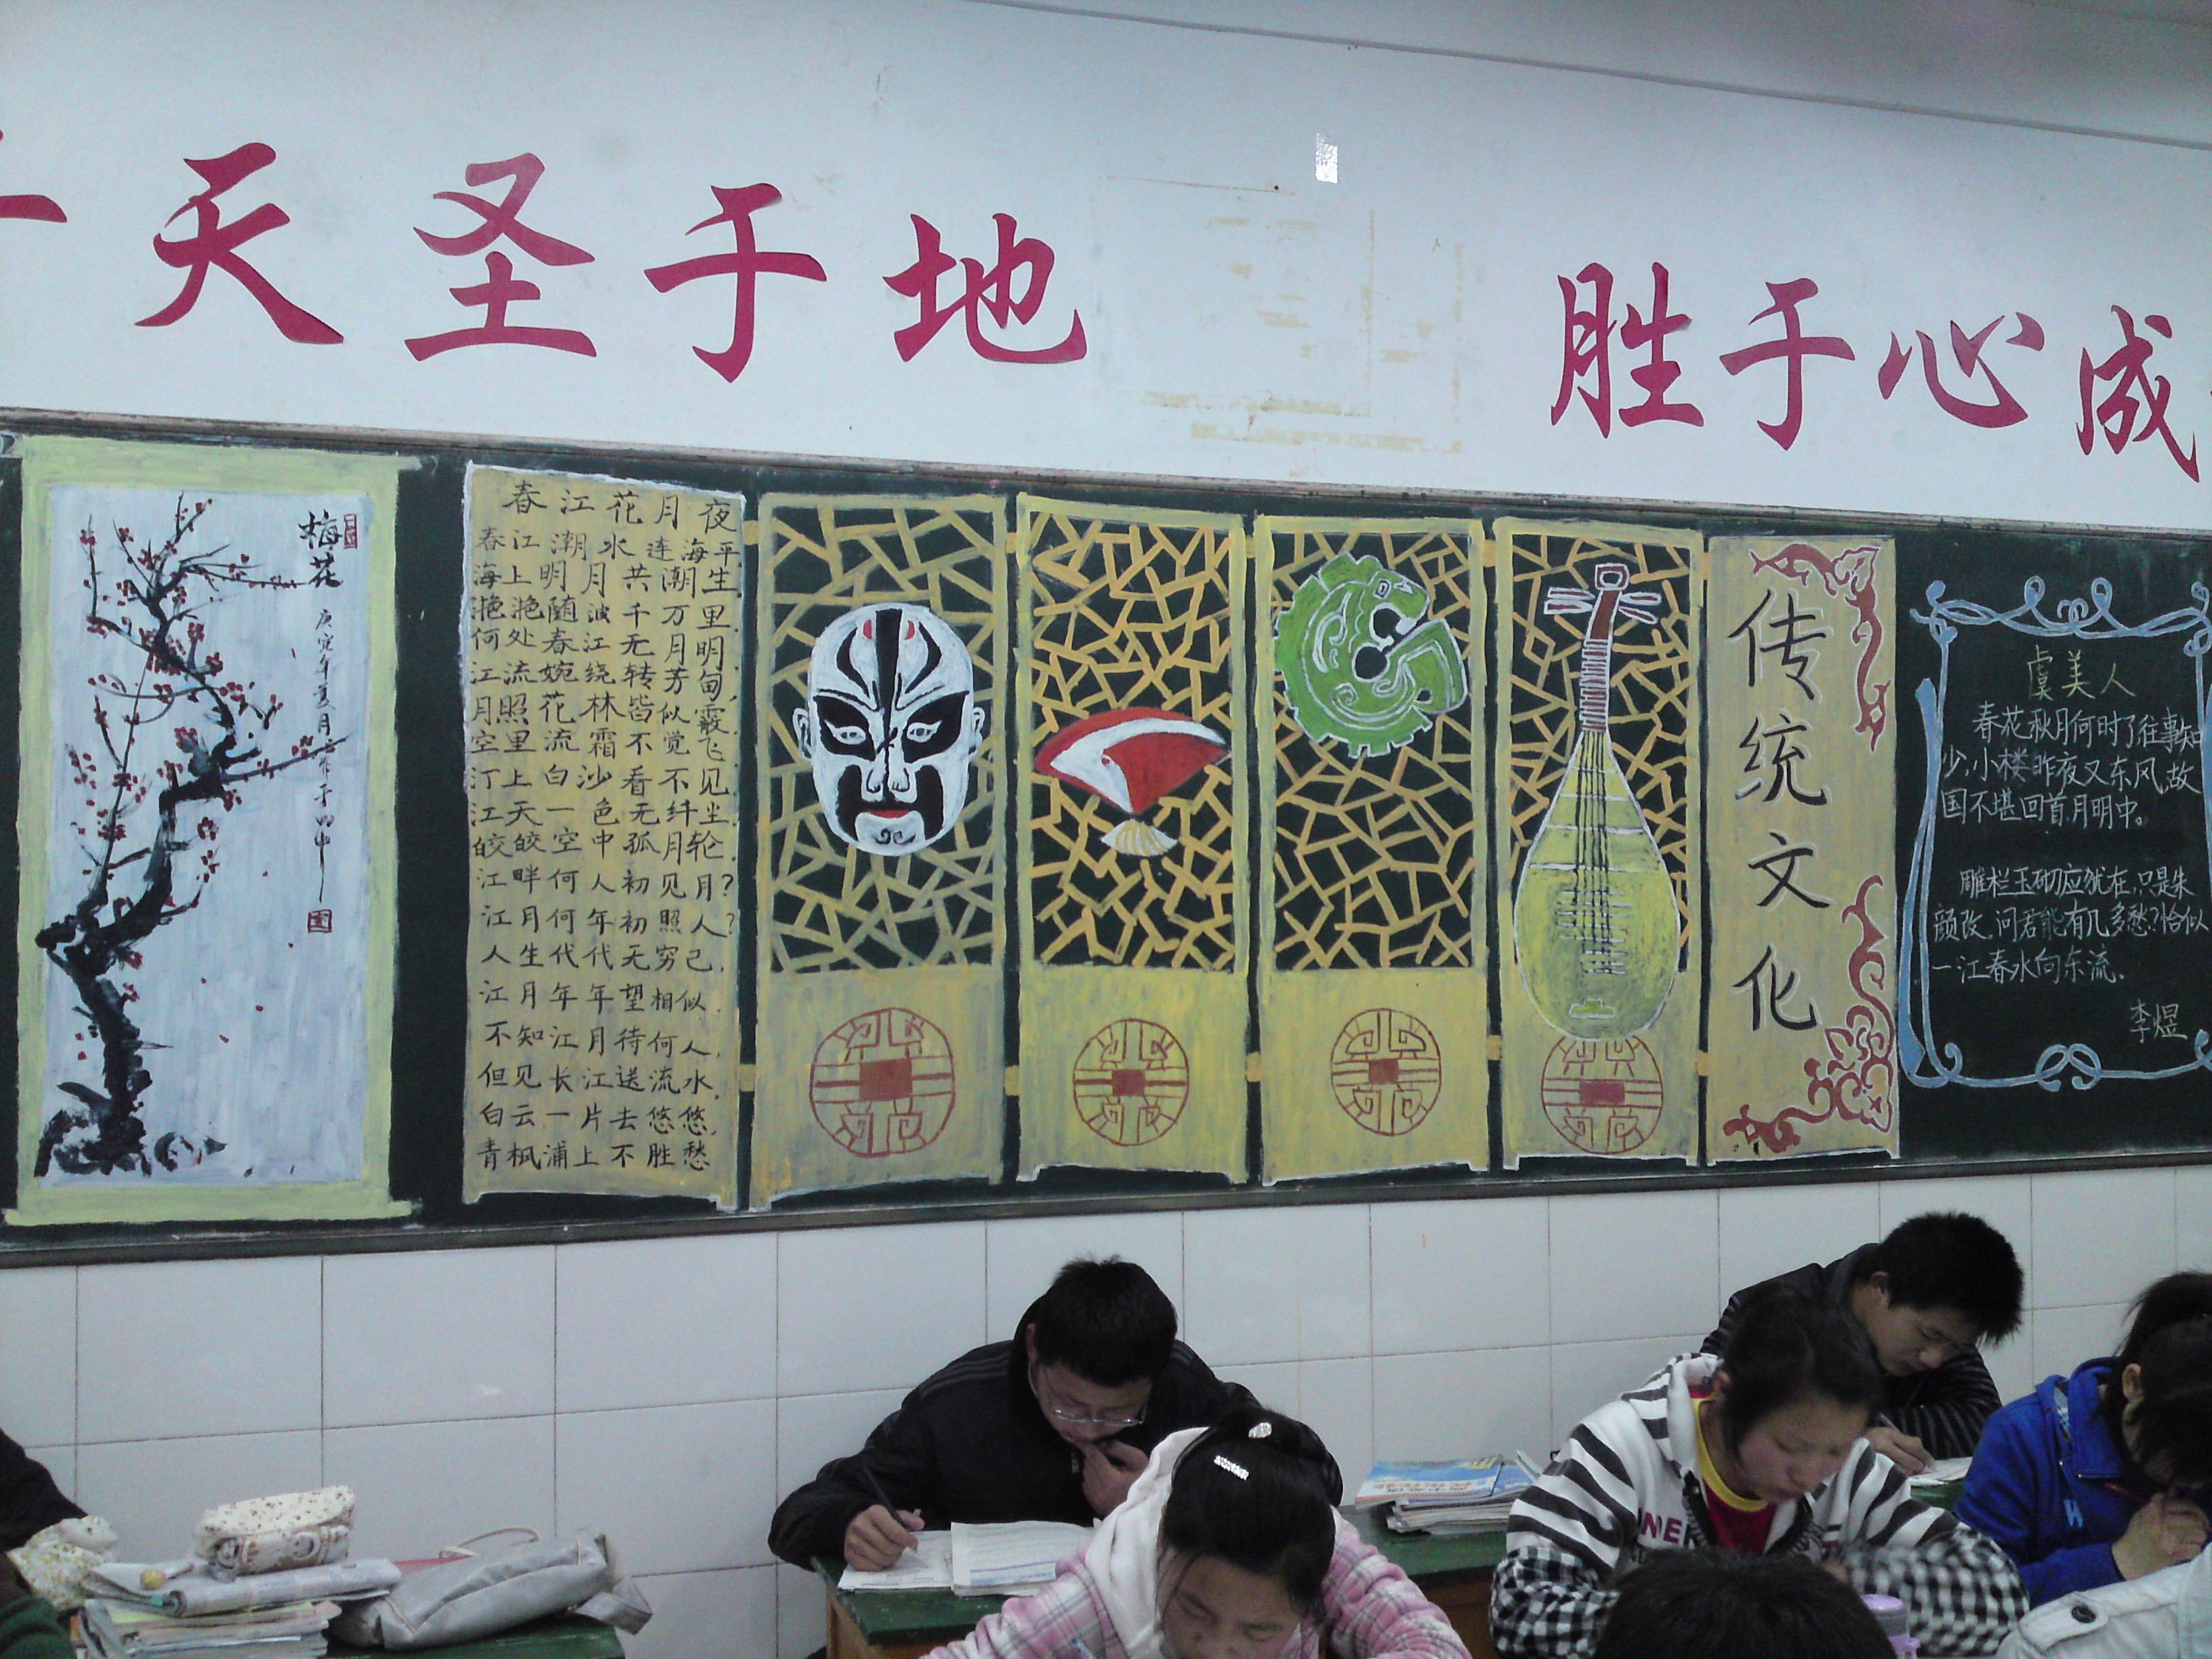 天圣于地
胜于心成
梅花
庚寅年夏月
春江花月夜
春江潮水连海平,
海上明月共潮生.
滟滟随波千万里,
何处春江无月明.
江流婉绕转芳甸,
月照花林皆似霰.
空里流霜不觉飞
汀上白沙看不见
江天一色无纤尘.
皎皎空中孤月轮.
江畔何人初见月?
江月何年初照人?
人生代代无穷己,
江月年年望相似.
不知江月待何人,
但见长江送流水.
白云一片去悠悠,
青枫浦上不胜愁
传统文化
虞美人
春花秋月何时了往事知
少,小楼昨夜又东风,故
国不堪回首月明中。
雕栏玉砌应犹在,只是朱
颜改.问君能有几多愁?恰似
一江春水向东流.
李煜